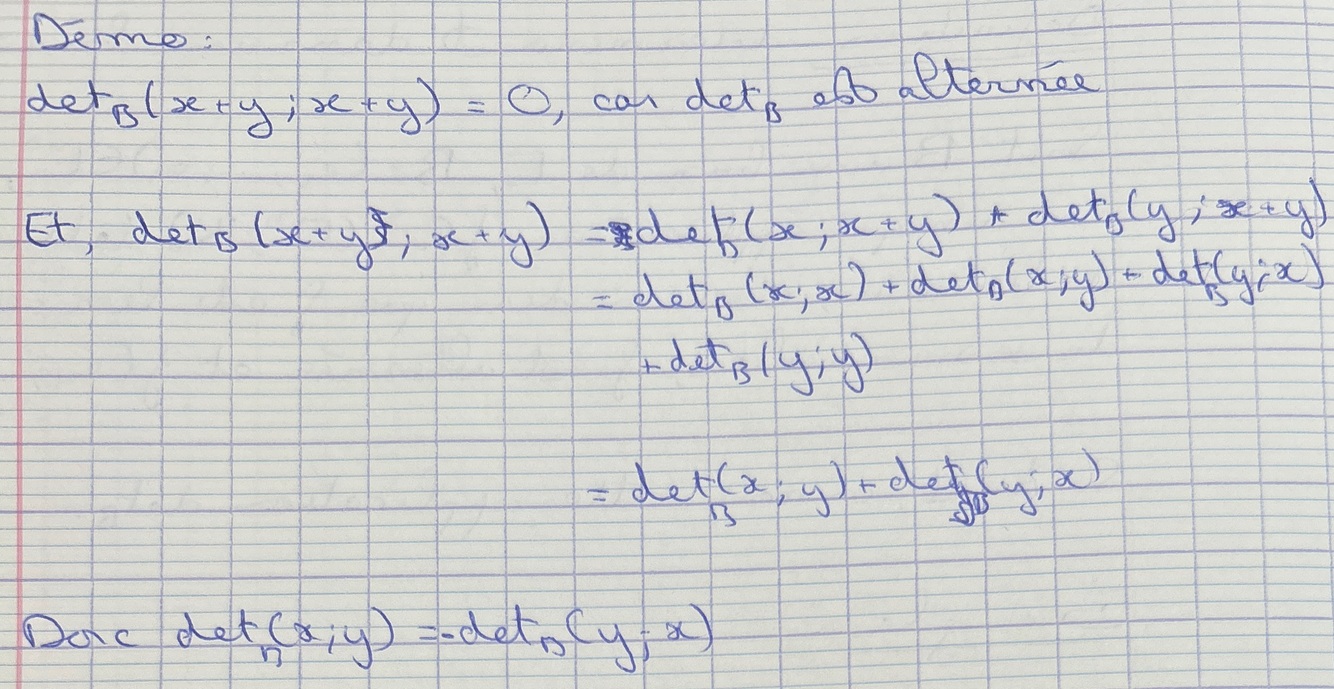 Démo :
det_B(x+y ; x+y) = 0, car det_B est alternée
Et, det_B (x+y ; x+y) = det_B(x ; x+y) + det_B(y ; x+y)
= det_B (x ; x) + det_B(x ; y) + det_B(y ; x)
+ det_B (y ; y)
= det_B(x ; y) + det_B(y ; x)
Donc det_B(x ; y) = -det_B(y ; x)